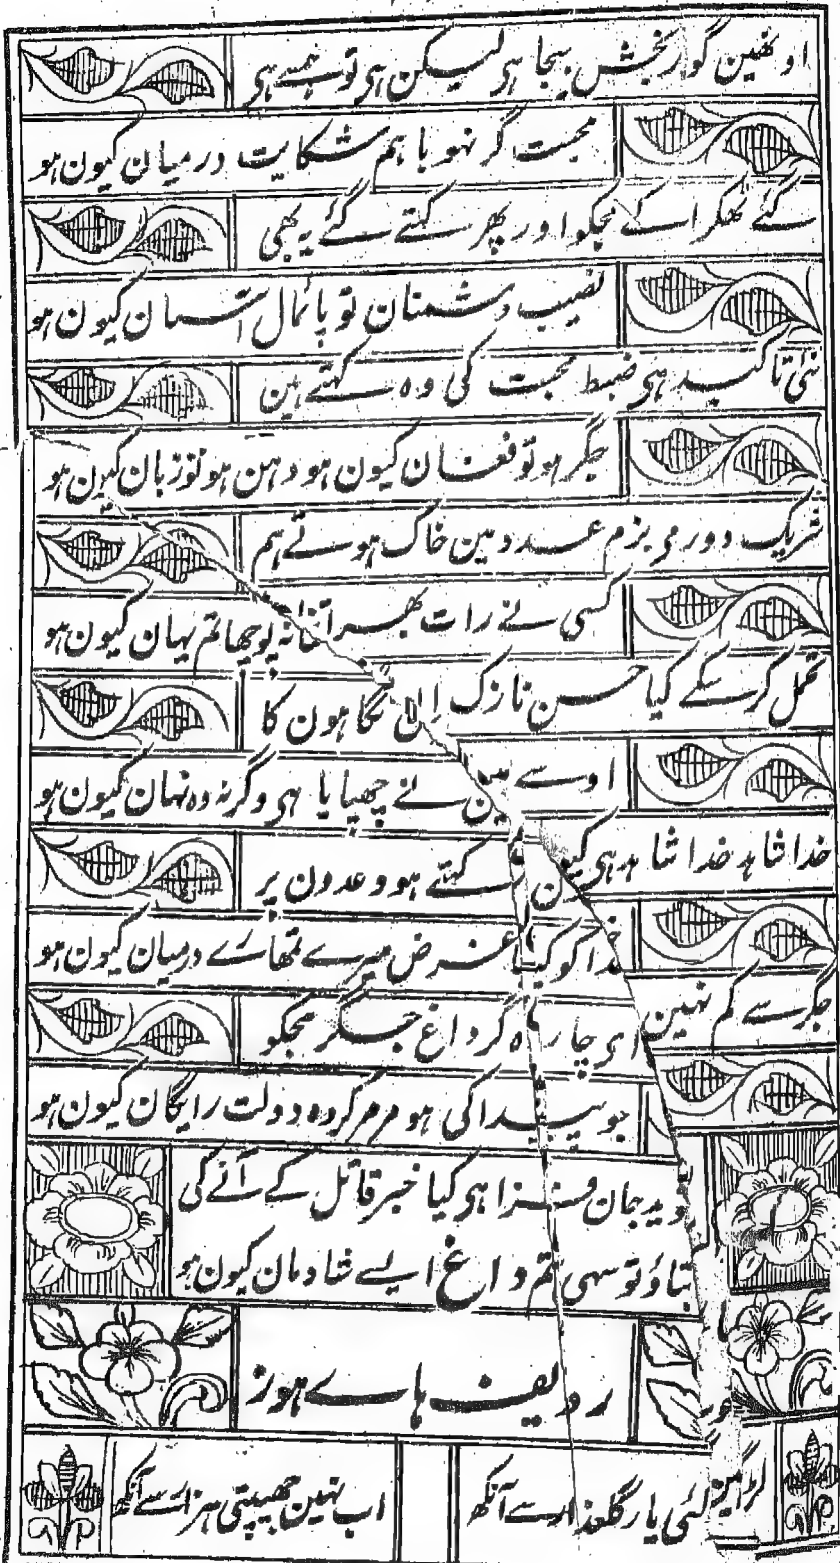 اونھین گو رنجش بیجا ہی لیکن ہی تو ہمسے ہی
محبت گر نہو باہم شکایت درمیان کیون ہو
گئے ٹھکرا کے مجکو اور پھر کہتے گئے یہ بھی
نصیب دشمنان تو پائمال آسمان کیون ہو
نئی تاکید ہی ضبط محبت کی وہ کہتے ہین
جگر ہو تو فغان کیون ہو دہن ہو تو زبان کیون ہو
شریک دور مے بزم عدو مین خاک ہوتے ہم
کسی نے رات بھر اتنا نہ پوچھا تم یہان کیون ہو
تحمل کر سکے کیا حسن نازک ان نگاہون کا
اوسے مین نے چھپایا ہی وگرنہ وہ نہان کیون ہو
خدا شاہد خدا شاہد ہی کیون کہتے ہو وعدون پر
خدا کو کیا غرض میرے تمھارے درمیان کیون ہو
جگر سے کم نہین اے چارہ گر داغ جگر مجکو
جو پیدا کی ہو مر مر کر وہ دولت رایگان کیون ہو
نوید جان فزا ہی کیا خبر قاتل کے آنے کی
بتاؤ تو سہی تم داغ ایسے شادمان کیون ہو
ردیف ہاے ہوز
لڑ گئی یار گلعذار سے آنکھ
اب نہین جھپتی ہزار سے آنکھ